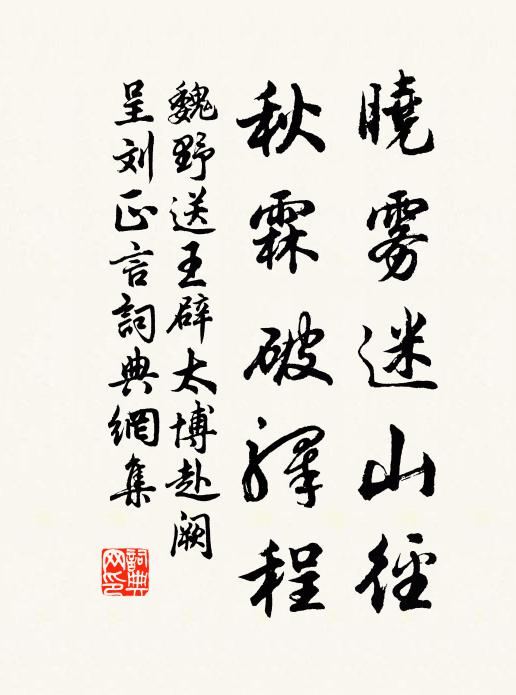 曉雾迷山径
秋霖破驛程
魏野送王辟太博赴阙
呈刘正言詞典網集
詞典網印